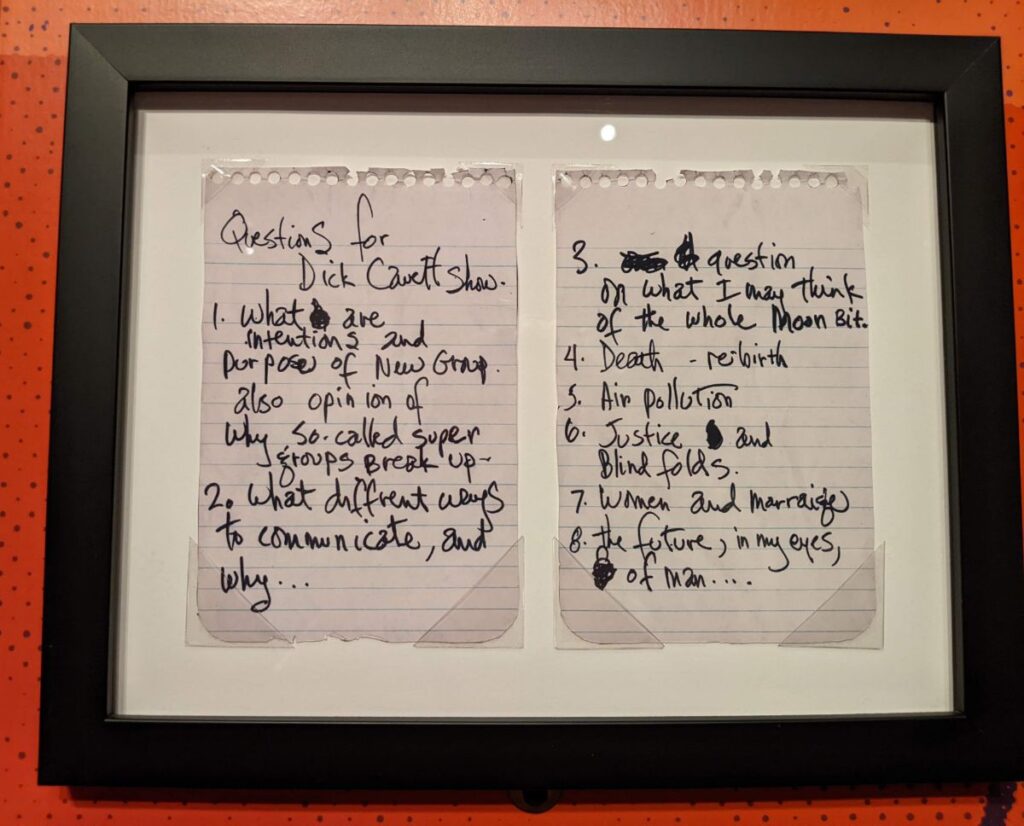 Questions for
Dick Cavett Show.
1. What are
intentions and
purpose of New Group.
also opinion of
why so-called super
groups Break up-
2. What diffrent ways
to communicate, and
why...
3. question
on what I may think
of the whole Moon Bit.
4. Death - re:birth
5. Air pollution
6. Justice and
Blind folds.
7. Women and marraige
8. the future, in my eyes,
of man....